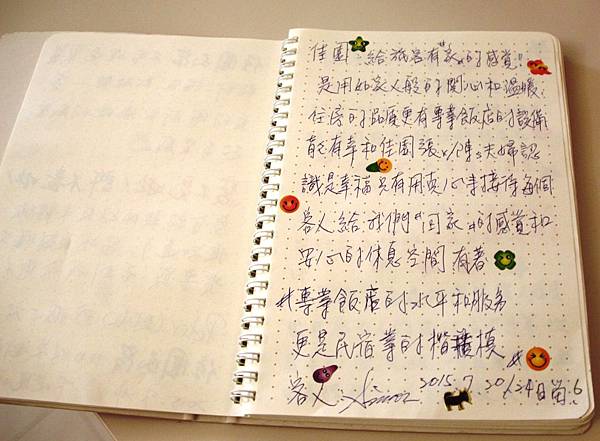 佳園 給旅客有“家”的感覺!
是用如家人般的関心和溫暖
住房的品质更有專業飯店的設備
能有幸和佳園張s/陳s夫婦認
識是幸福只有用真心來接待每個
客人給我們“回家”的感覺和
安心的休息空間 有著
#專業飯店的水平和服務
更是民宿業的楷模 #
客人 2015.7 20/24日